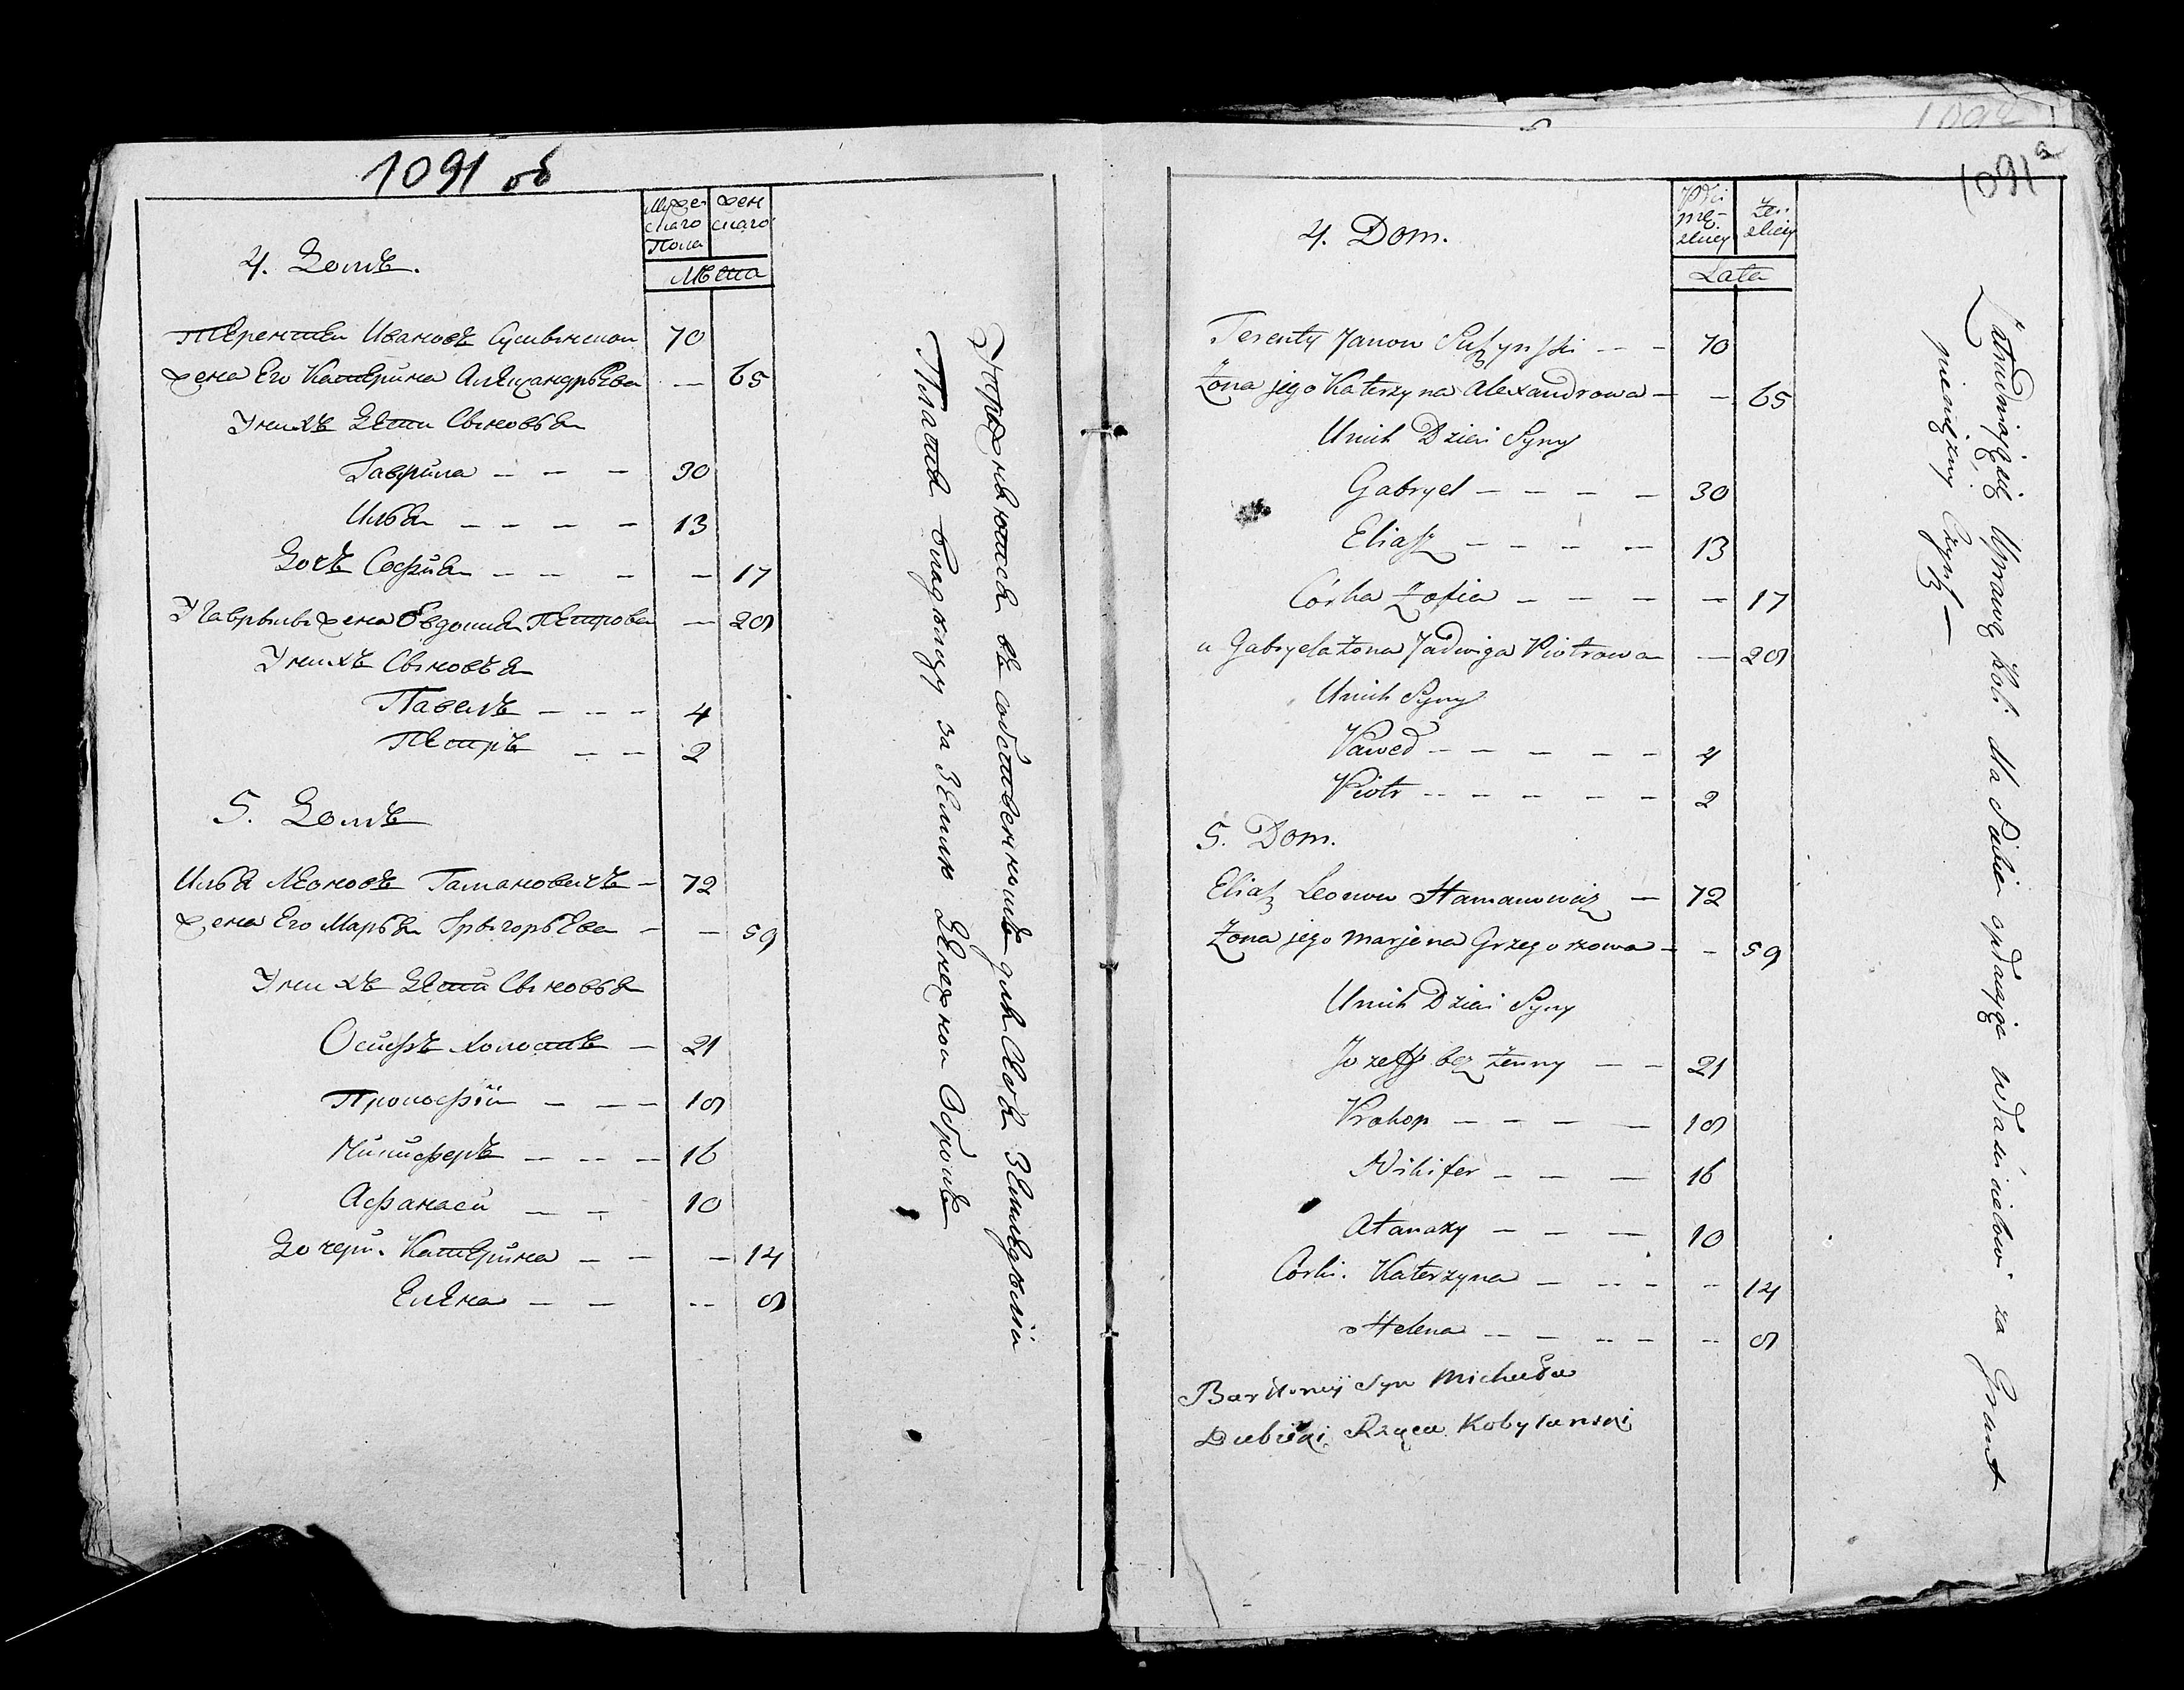 1091 об
Мужескаго Пола
Женскаго
Лѣта
4. Домъ.
Терентей Ивановъ Сушынскои 70
Жена Его Катерина Александрыева — 65
У нихъ Дети Сыновья
Гаврила — — — 30
Илья — — — — 13
Дочъ София — — — — 17
У Гаврылы жена Евдокия Петрова — 28
У нихъ Сыновъя
Павелъ — — — 4
Петръ — — 2
5. Домъ
Илья Леоновъ Гамановичъ — 72
Жена Его Марья Грыгорьева — — 59
У нихъ Дети Сыновья
Осифъ холостъ — 21
Прокофій — — — 18
Никиферъ — — — 16
Афанаси — — 10
Дочери. Катерина — — — 14
Елена — — — 8
Упражняютса въ собственнымъ для себя земледеліи
Платятъ владелцу за землю денежнои Оброкъ
1092
1091а
Płci męskiey
Żeńskiey
Lata
4. Dom.
Terenty Janow Suszynski — — 70
Żona jego Katerzyna Alexandrowa — — 65
U nich Dzieci Syny
Gabryel — — — — 30
Eliasz — — — — 13
Córka Zofia — — — — 17
u Gabryela żona Jadwiga Piotrowa — 28
U nich Syny
Paweł — — — — — 4
Piotr — — — — — 2
5. Dom.
Eliasz Leonow Hamanowicz — 72
Żona jego Marjena Grzegorzowa — — 59
U nich Dzieci Syny
Jozeff bez żenny — — 21
Prokop — — — — 18
Nikifer — — — 16
Atanazy — — — 10
Córki. Katerzyna — — — — 14
Helena — — — — — 8
Bartłomiy syn Michała
Dubicki Rządca Kobylanski
Zatrudniają się Uprawą Roli Na Siebie opłacają właścicielowi za Grunt
pieniężny Czynsz —